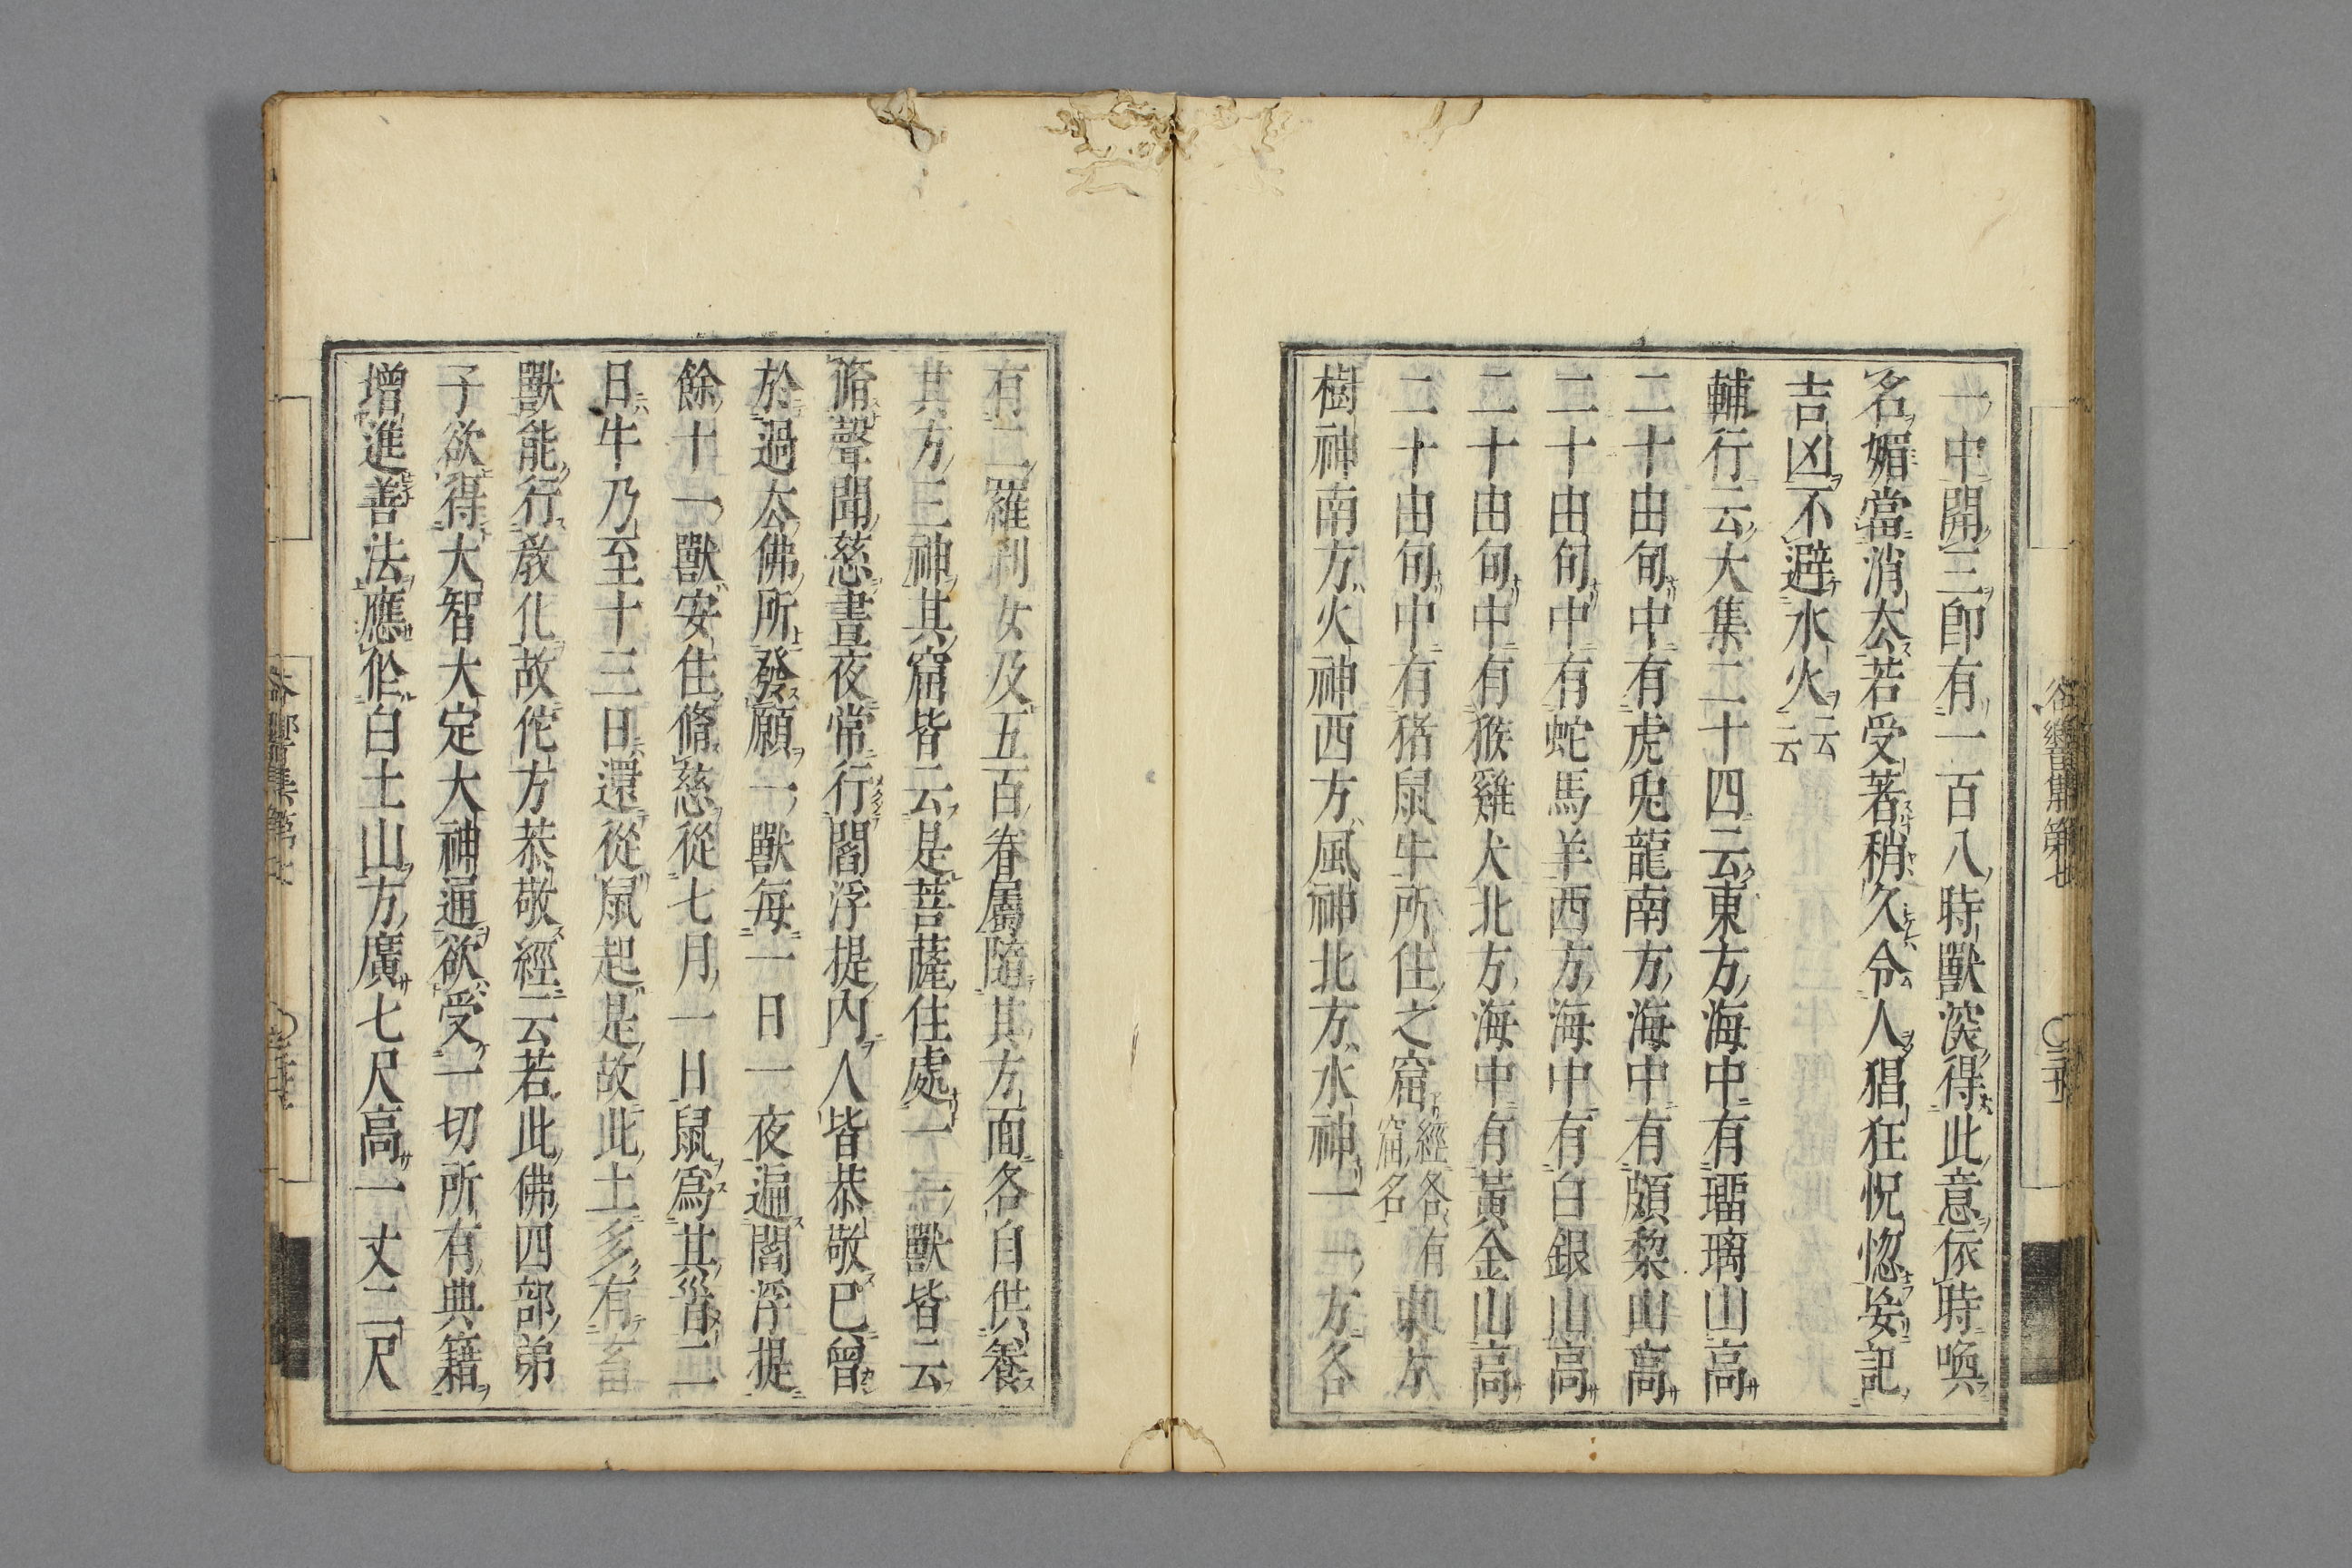 一中開三即有一百八時獸深得此意依時喚
名媚當消厺若受著稍久令人猖狂怳惚妄記
吉凶不避水火云云
輔行云大集二十四云東方海中有瑠璃山高
二十由旬中有虎兎龍南方海中有頗棃山高
二十由旬中有蛇馬羊西方海中有白銀山高
二十由旬中有猴雞犬北方海中有黃金山高
二十由旬中有猪鼠牛所住之窟經各有窟名東方
樹神南方火神西方風神北方水神一一方各
有二羅刹女及五百眷屬隨其方面各自供養
其方三神其窟皆云是菩薩住處一一獸皆云
脩聲聞慈晝夜常行閻浮提內人皆恭敬已曾
於過厺佛所發願一獸每一日一夜遍閻浮提
餘十一獸安住脩慈從七月一日鼠爲其首二
日牛乃至十三日還從鼠起是故此土多有畜
獸能行敎化故佗方恭敬經云若此佛四部弟
子欲得大智大定大神通欲受一切所有典籍
增進善法應作白土山方廣七尺高一丈二尺